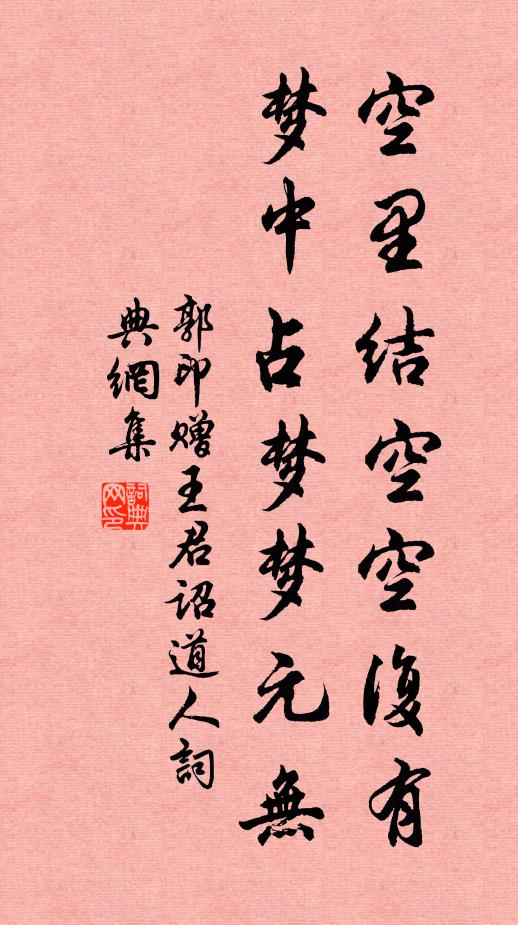 空里结空空復有
梦中占梦梦元無
郭印赠王君诏道人詞
典網集
詞典
网印